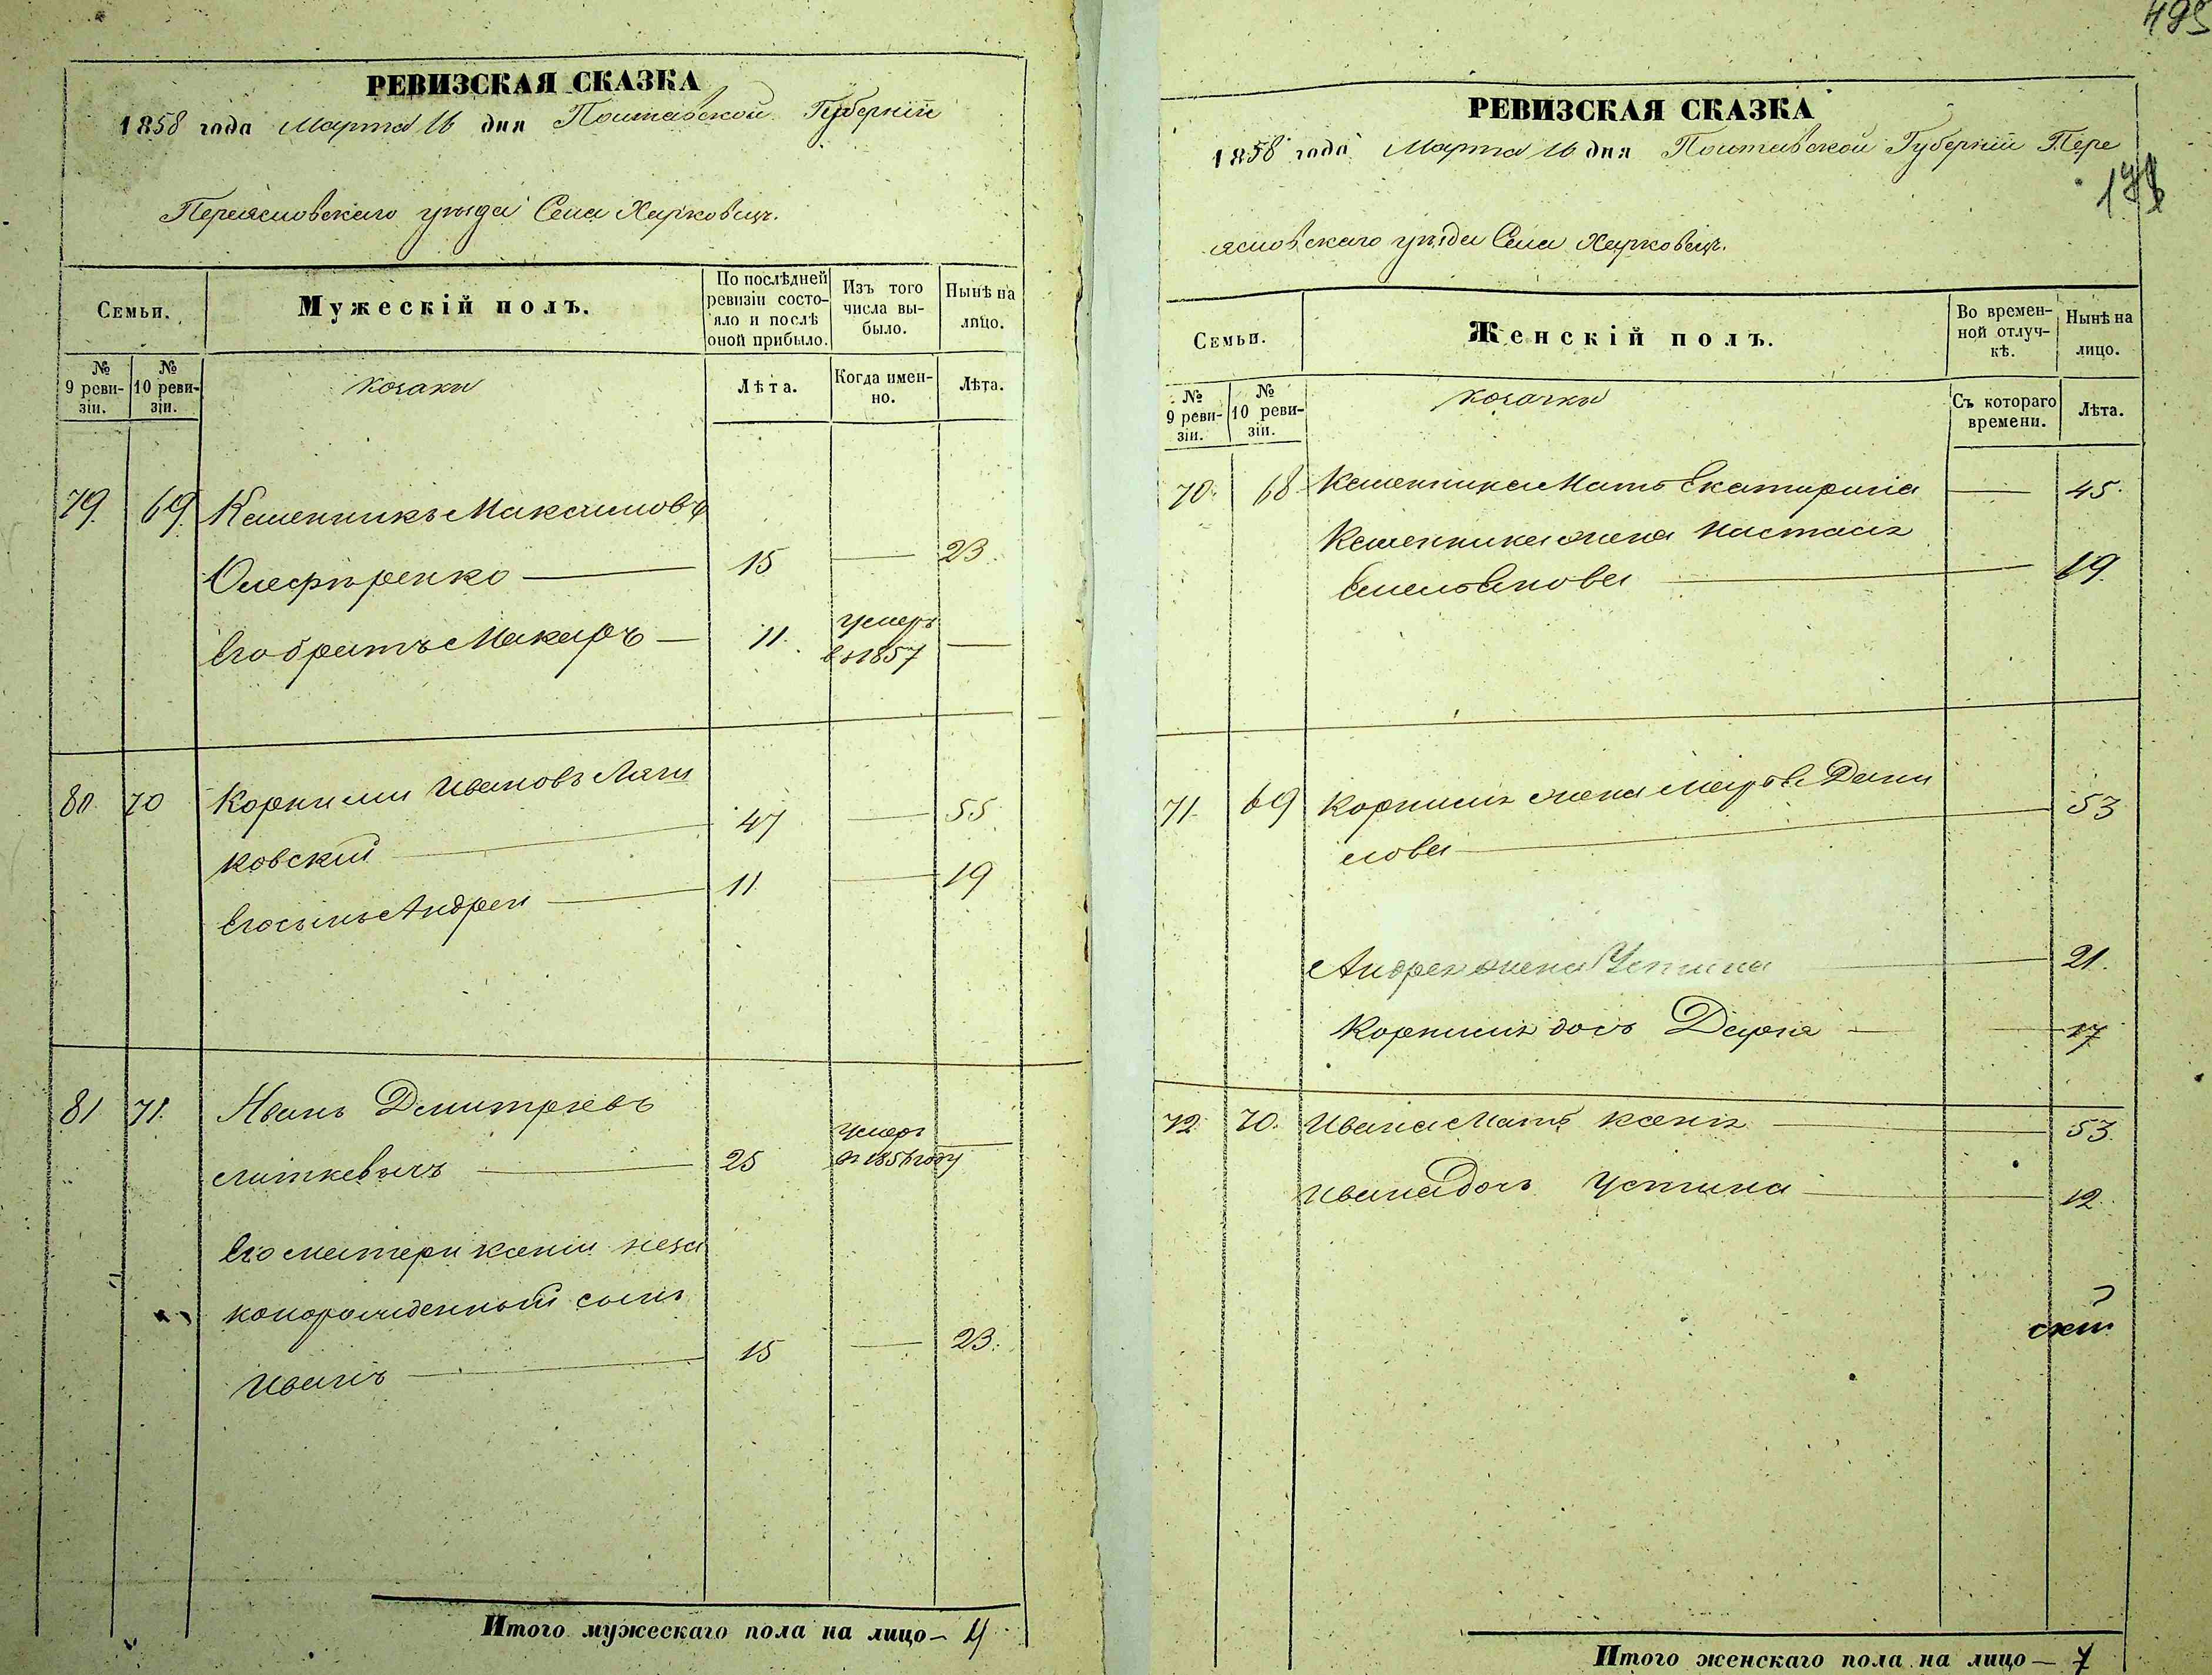 РЕВИЗСКАЯ СКАЗКА
1858 года Марта 16 дня Полтавской Губернии
Переясловского уѣзда Села Харковецъ.
Семьи.
Мужескій полъ.
По послѣдней ревизіи состояло и послѣ оной прибыло.
Изъ того числа выбыло.
Нынѣ на лицо.
№ 9 ревизіи.
№ 10 ревизіи.
козаки
Лѣта.
Когда именно.
Лѣта.
79. 69. Каленникъ Максимовъ
Олефиренко — 15 — 23.
Его братъ Макаръ — 11. умеръ въ 1857 —
80. 70 Корнилій Ивановъ Ляли
ковскій — 47 — 55
Его сынъ Андрей — 11. — 19
81 71. Иванъ Дмитріевъ
Литкевичъ — 25 умеръ въ 1856 году —
Его матери Ксеніи неза
конорожденный сынъ
Иванъ — 15 — 23.
Итого мужескаго пола на лицо — 4
РЕВИЗСКАЯ СКАЗКА
1858 года Марта 16 дня Полтавской Губерніи Пере
ясловскаго уѣзда Села Харковецъ.
Семьи.
Женскій полъ.
Во временной отлучкѣ.
Нынѣ на лицо.
№ 9 ревизіи.
№ 10 ревизіи.
козачки
Съ котораго времени.
Лѣта.
70. 68. Каленника Мать Екатирина — 45.
Каленника жена Настасія
Емельянова — 19.
71. 69 Корнилія жена Марѳа Дани
лова — 53
Андрея жена Устина — 21.
Корнилія дочь Дарія — 17
72. 70. Ивана Мать Ксенія — 53.
Ивана дочь Устина — 12.
Итого женскаго пола на лицо — 7